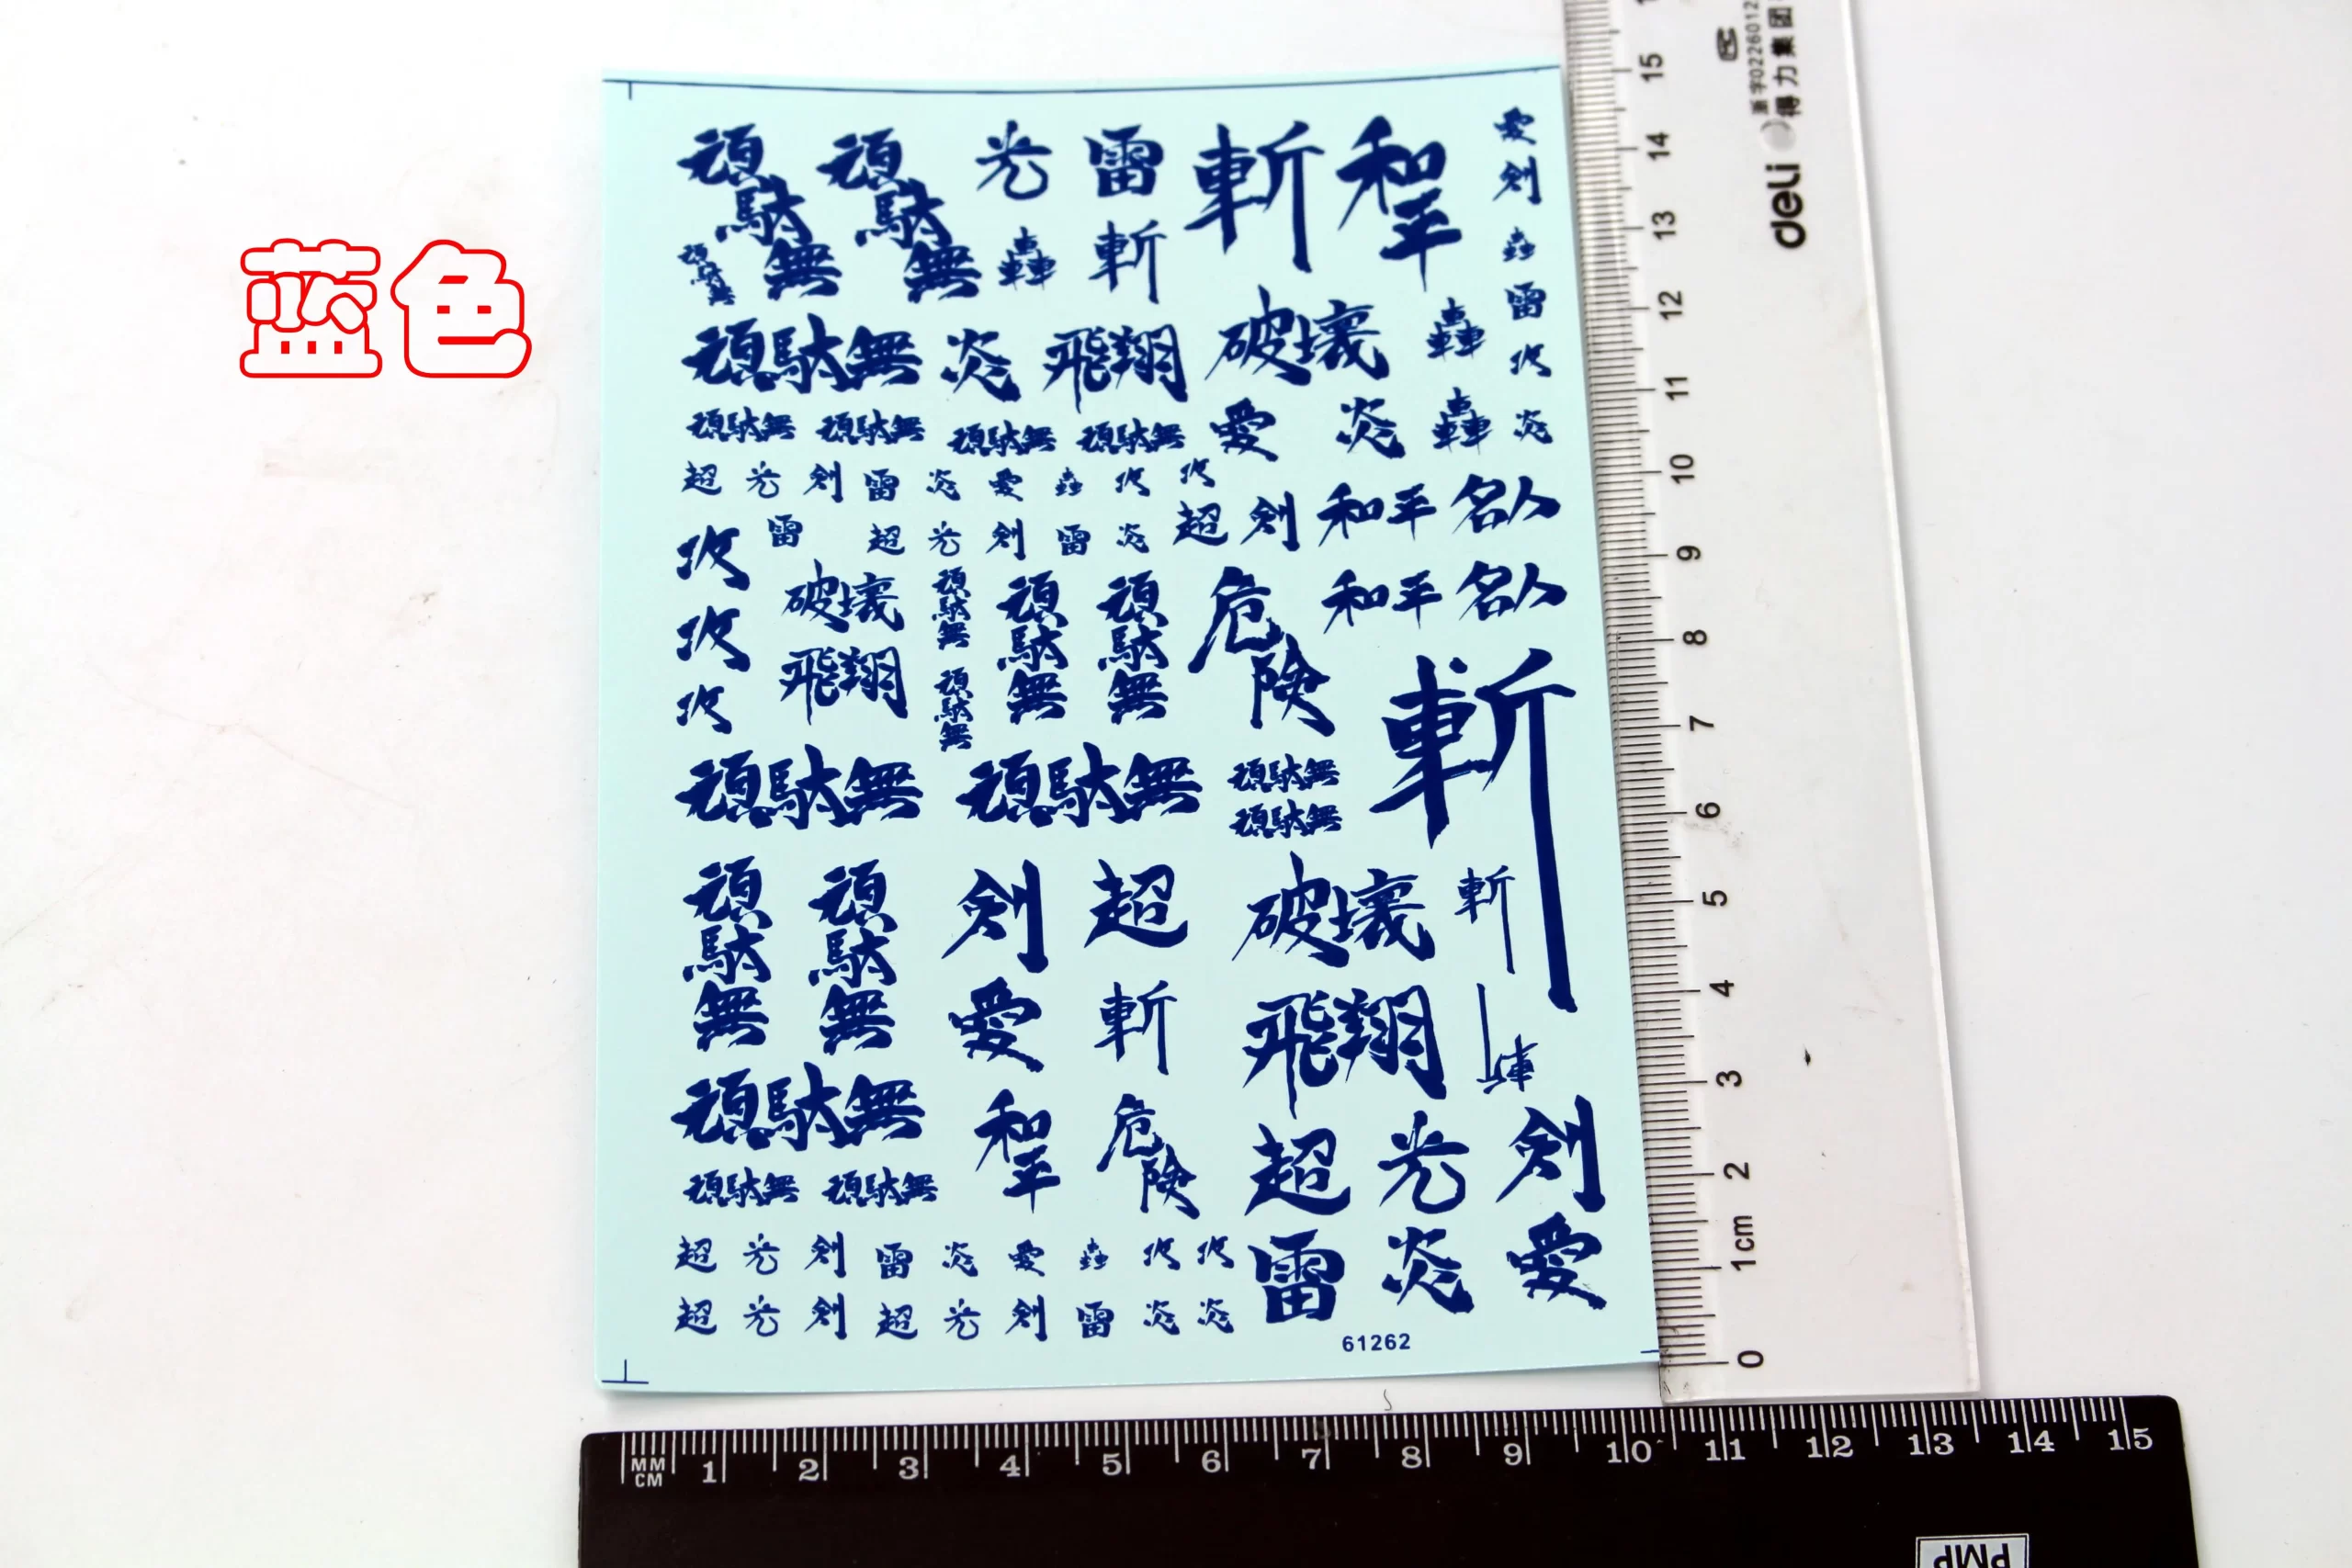 蓝色
頑 頑 光 雷 斬 和 愛
駄 駄 平 剣
頑駄無 無 無 轟 斬 轟
雷
頑駄無 炎 飛翔 破壊 轟 攻
頑駄無 頑駄無 頑駄無 頑駄無 愛 炎 轟 炎
超 光 剣 雷 炎 愛 轟 攻 攻
攻 雷 超 光 剣 雷 炎 超 剣 和平 名人
攻 破壊 頑駄無 頑駄無 頑駄無 危険 和平 名人
攻 飛翔 頑駄無 斬
頑駄無 頑駄無 頑駄無
頑駄無
頑駄無 頑駄無 剣 超 破壊 斬
愛 斬 飛翔
頑駄無 和平 危険 超 光 剣
頑駄無 頑駄無
超 光 剣 雷 炎 愛 轟 攻 攻 雷 炎 愛
超 光 剣 超 光 剣 雷 炎 炎
61262
15
14
13
12
11
10
9
8
7
6
5
4
3
2
1cm
0
deli
得力集团
MM
CM
1 2 3 4 5 6 7 8 9 10 11 12 13 14 15
PMP